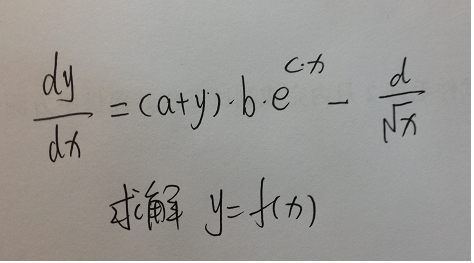 dy/dx = (a+y)·b·e^{c·x} - d/√x
求解 y=f(x)